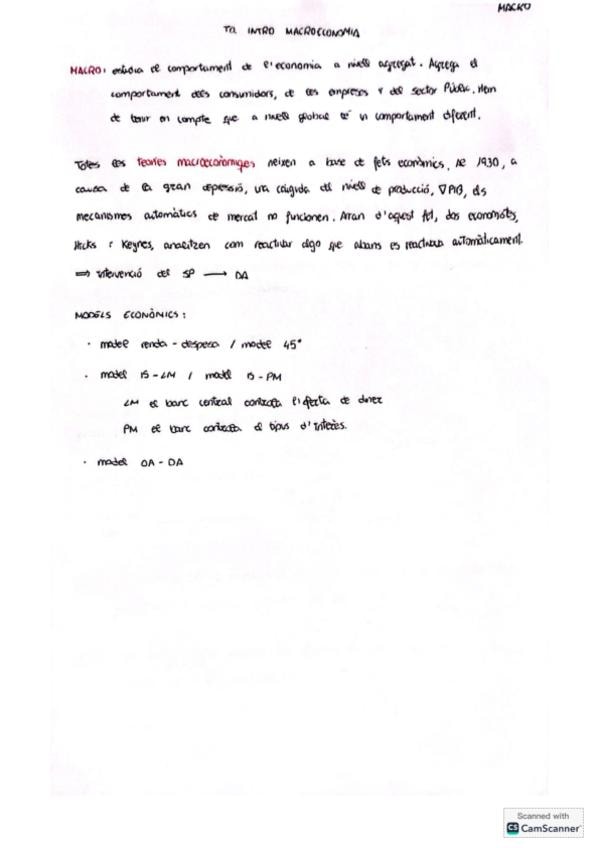 MACRO
T0. INTRO MACROECONOMIA
MACRO: estudia el comportament de l'economia a nivell agregat. Agrega el
comportament dels consumidors, de les empreses i del sector Públic. Hem
de tenir en compte que a nivell global té un comportament diferent.
Totes les teories macroeconòmiques neixen a base de fets econòmics, 1930, a
causa de la gran depressió, una caiguda del nivell de producció, ∇PIB, els
mecanismes automàtics de mercat no funcionen. Arran d'aquest fet, dos economistes,
Hicks i Keynes, analitzen com reactivar algo que abans es reactivava automàticament.
⟹ intervenció del SP ⟶ DA
MODELS ECONÒMICS:
· model renda - despesa / model 45°
· model IS-LM / model IS-PM
LM el banc central controla l'oferta de diner
PM el banc controla el tipus d'interès.
· model OA - DA
Scanned with
CS CamScanner